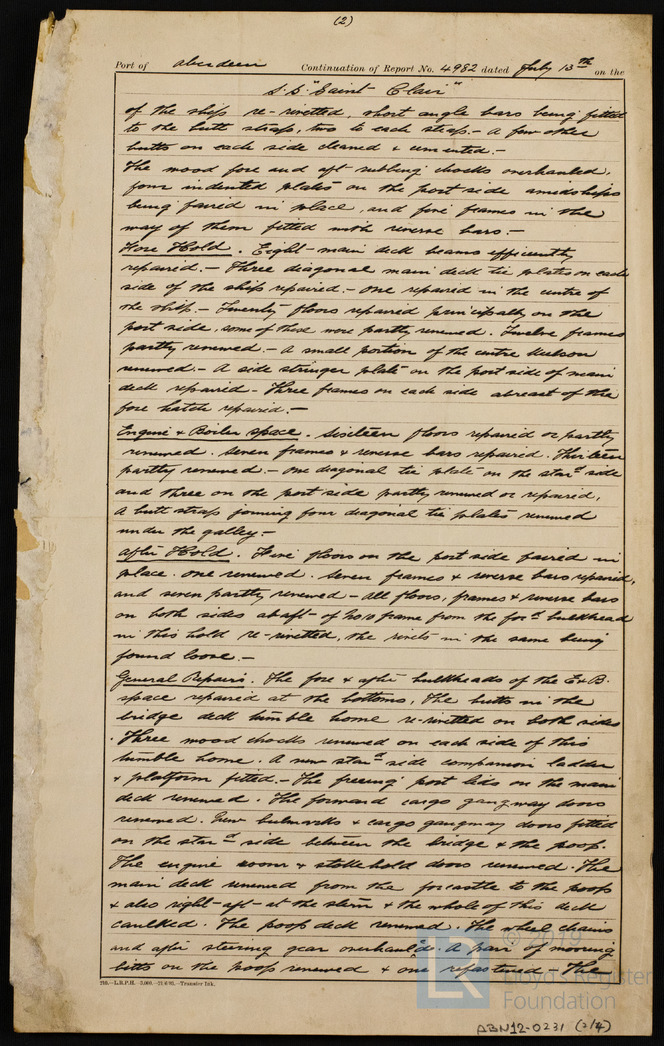 (2)
Port of Aberdeen Continuation of Report No. 4982 dated July 13th on the
S.S. "Saint Clair"
of the ship re-rivetted, short angle bars being fitted
to the butt straps, two to each strap. - A few other
butts on each side cleaned & cemented. -
The wood fore and aft rubbing chocks overhauled,
four indented plates on the port side amidships
being faired in place, and five frames in the
way of them fitted with reverse bars. -
Fore Hold. Eight main deck beams efficiently
repaired. - Three diagonal main deck tie plates on each
side of the ship repaired. - One repaired in the centre of
the ship. - Twenty floors repaired principally on the
port side, some of these were partly renewed. Twelve frames
partly renewed. - A small portion of the centre keelson
renewed. - A side stringer plate on the port side of main
deck repaired - Three frames on each side abreast of the
fore hatch repaired. -
Engine & Boiler space. Sixteen floors repaired or partly
renewed. Seven frames & reverse bars repaired. Thirteen
partly renewed. - One diagonal tie plate on the starbd side
and three on the port side partly renewed or repaired,
A butt strap joining four diagonal tie plates renewed
under the galley. -
After Hold. Five floors on the port side faired in
place. One renewed. Seven frames & reverse bars repaired,
and seven partly renewed - All floors, frames & reverse bars
on both sides abaft of No 10 frame from the ford bulkhead
in this hold re-rivetted, the rivets in the same being
found loose. -
General Repairs. The fore & after bulkheads of the E & B.
space repaired at the bottoms, The butts in the
bridge deck tumble home re-rivetted on both sides
Three wood chocks renewed on each side of this
tumble home. A new stard side companion ladder
& platform fitted. - The freeing port lids on the main
deck renewed. The forward cargo gangway doors
renewed. New bulwarks & cargo gangway doors fitted
on the stard side between the bridge & the poop.
The engine room & stokehold doors renewed. The
main deck renewed from the forecastle to the poop
& also right aft at the stern & the whole of this deck
caulked. The poop deck renewed. The wheel chains
and after steering gear overhauled. A pair of mooring
bitts on the poop renewed & one refastened - The
210.-L.R.P.H.
-Transfer Ink.
© 2019
LR
Lloyd's Register
Foundation
ABN12-0231 (2/4)